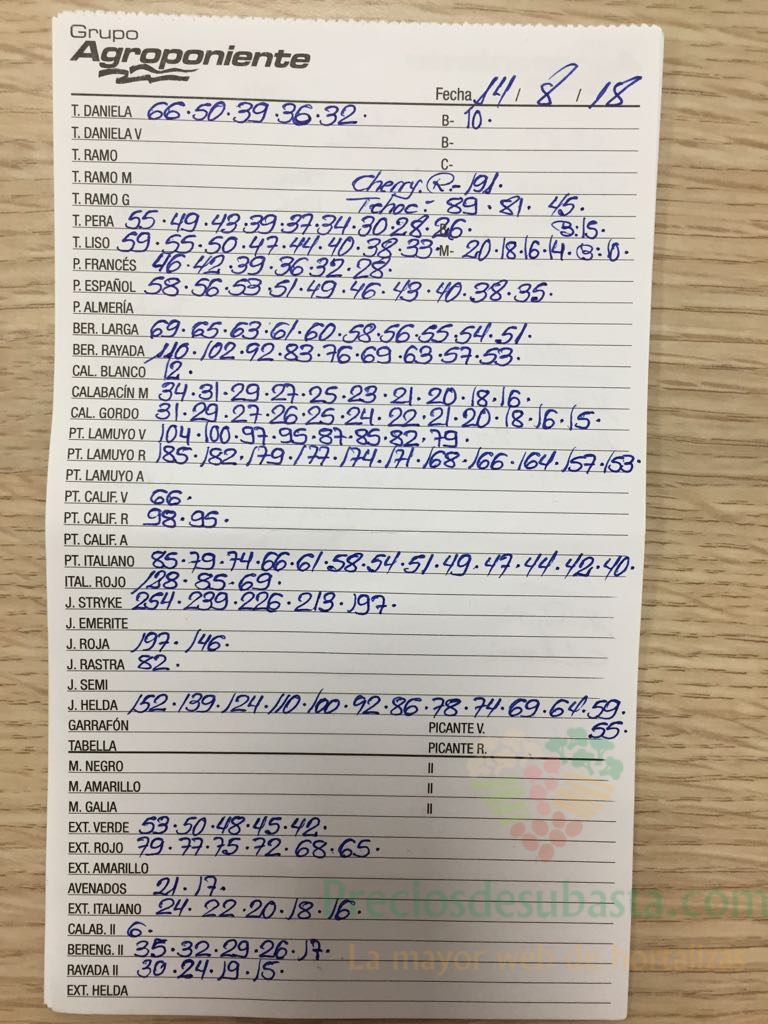 Grupo
Agroponiente
Fecha 14 / 8 / 18
T. DANIELA 66·50·39·36·32· B- 10·
T. DANIELA V B-
T. RAMO C-
T. RAMO M Cherry. R- 191·
T. RAMO G Tchoc: 89·81·45·
T. PERA 55·49·43·39·37·34·30·28·26· B:15·
T. LISO 59·55·50·47·44·40·38·33· M- 20·18·16·14· B:10·
P. FRANCÉS 46·42·39·36·32·28·
P. ESPAÑOL 58·56·53·51·49·46·43·40·38·35·
P. ALMERÍA
BER. LARGA 69·65·63·61·60·58·56·55·54·51·
BER. RAYADA 110·102·92·83·76·69·63·57·53·
CAL. BLANCO 12·
CALABACÍN M 34·31·29·27·25·23·21·20·18·16·
CAL. GORDO 31·29·27·26·25·24·22·21·20·18·16·15·
PT. LAMUYO V 104·100·97·95·87·85·82·79·
PT. LAMUYO R 185·182·179·177·174·171·168·166·164·157·153·
PT. LAMUYO A
PT. CALIF. V 66·
PT. CALIF. R 98·95·
PT. CALIF. A
PT. ITALIANO 85·79·74·66·61·58·54·51·49·47·44·42·40·
ITAL. ROJO 128·85·69·
J. STRYKE 254·239·226·213·197·
J. EMERITE
J. ROJA 197·146·
J. RASTRA 82·
J. SEMI
J. HELDA 152·139·124·110·100·92·86·78·74·69·64·59·
GARRAFÓN PICANTE V. 55·
TABELLA PICANTE R.
M. NEGRO II
M. AMARILLO II
M. GALIA II
EXT. VERDE 53·50·48·45·42·
EXT. ROJO 79·77·75·72·68·65·
EXT. AMARILLO
AVENADOS 21·17·
Preciosdesubasta.com
EXT. ITALIANO 24·22·20·18·16·
CALAB. II 6·
BERENG. II 35·32·29·26·17·
La mayor web de hortalizas
RAYADA II 30·24·19·15·
EXT. HELDA